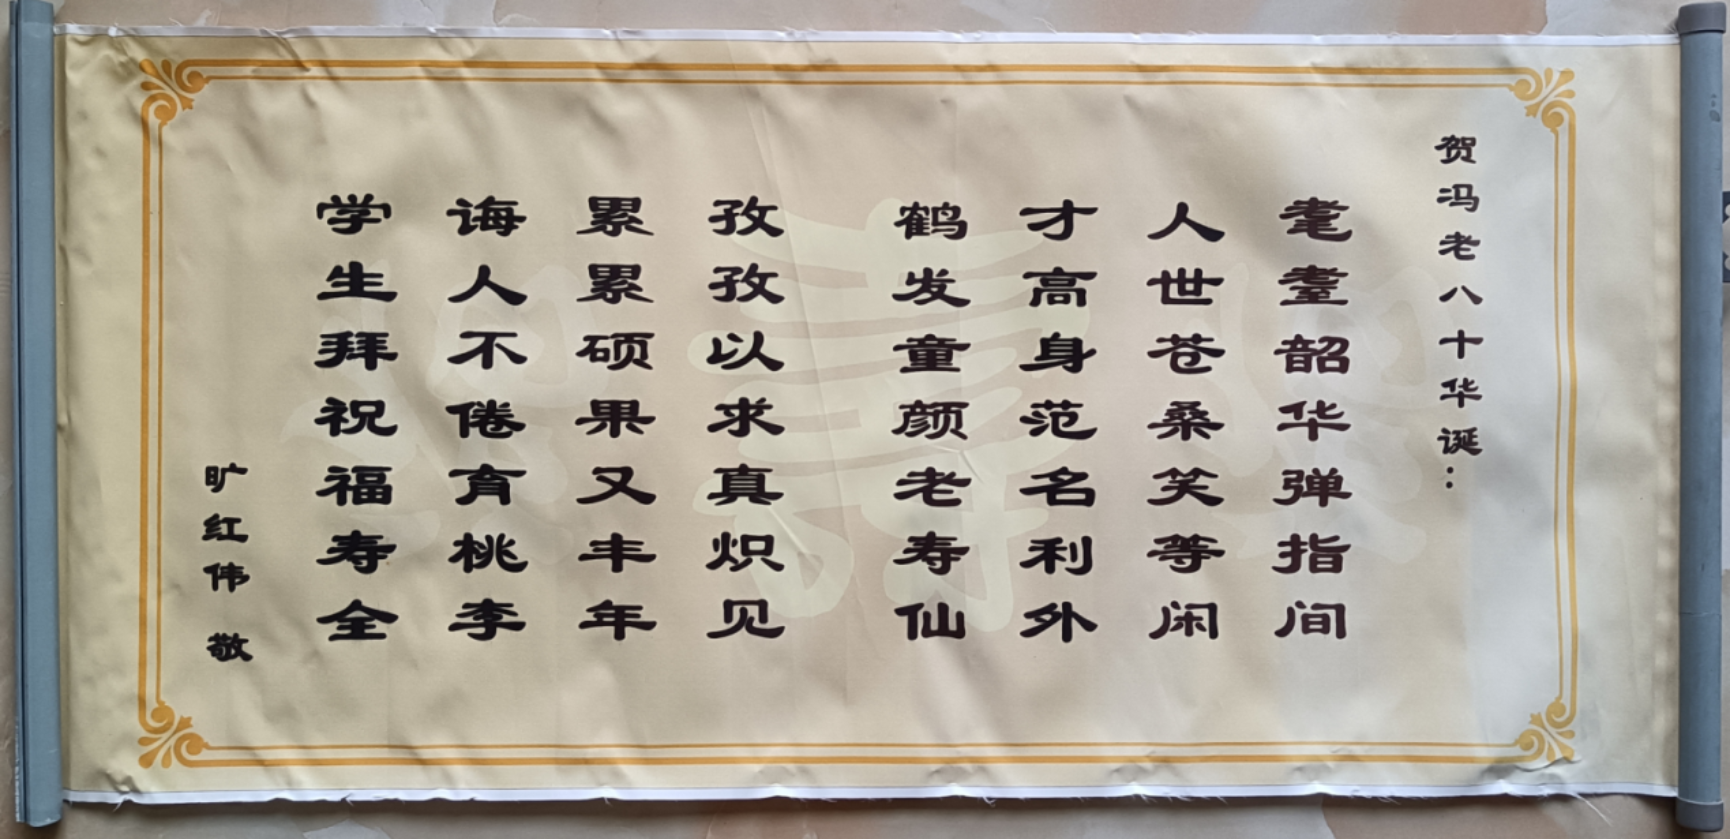 贺冯老八十华诞：
耄耋韶华弹指间
人世苍桑笑等闲
才高身范名利外
鹤发童颜老寿仙
孜孜以求真炽见
累累硕果又丰年
诲人不倦育桃李
学生拜祝福寿全
旷红伟 敬
寿